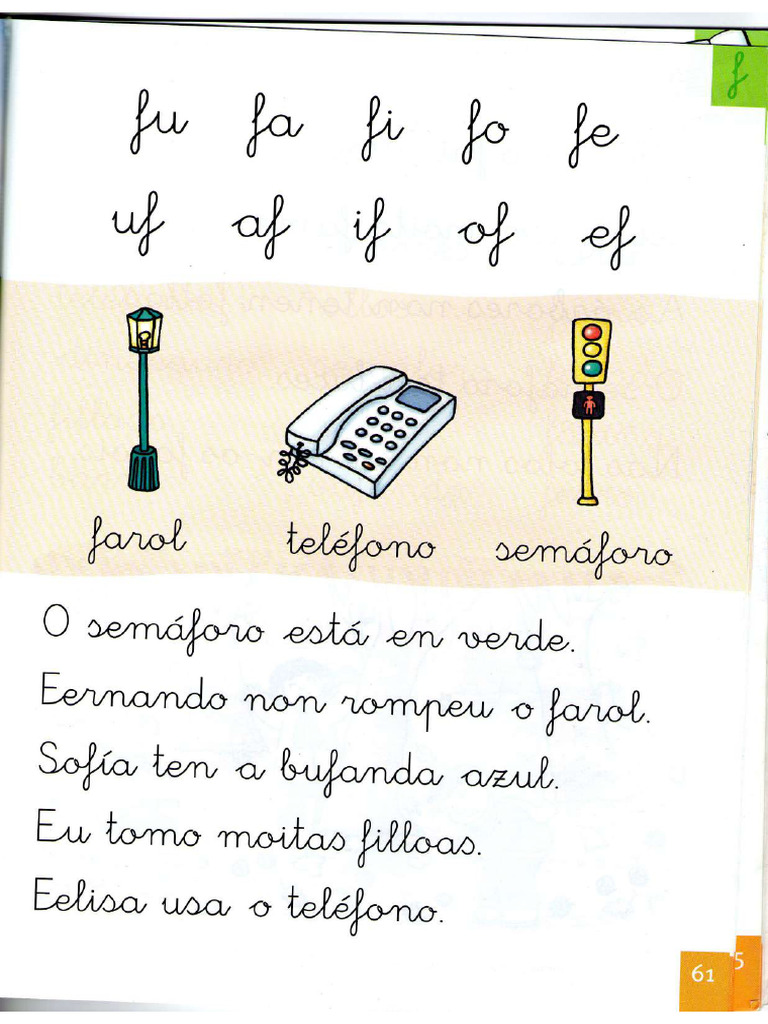 f
fu fa fi fo fe
uf af if of ef
farol teléfono semáforo
O semáforo está en verde.
Eernando non rompeu o farol.
Sofía ten a bufanda azul.
Eu tomo moitas filloas.
Eelisa usa o teléfono.
61
5